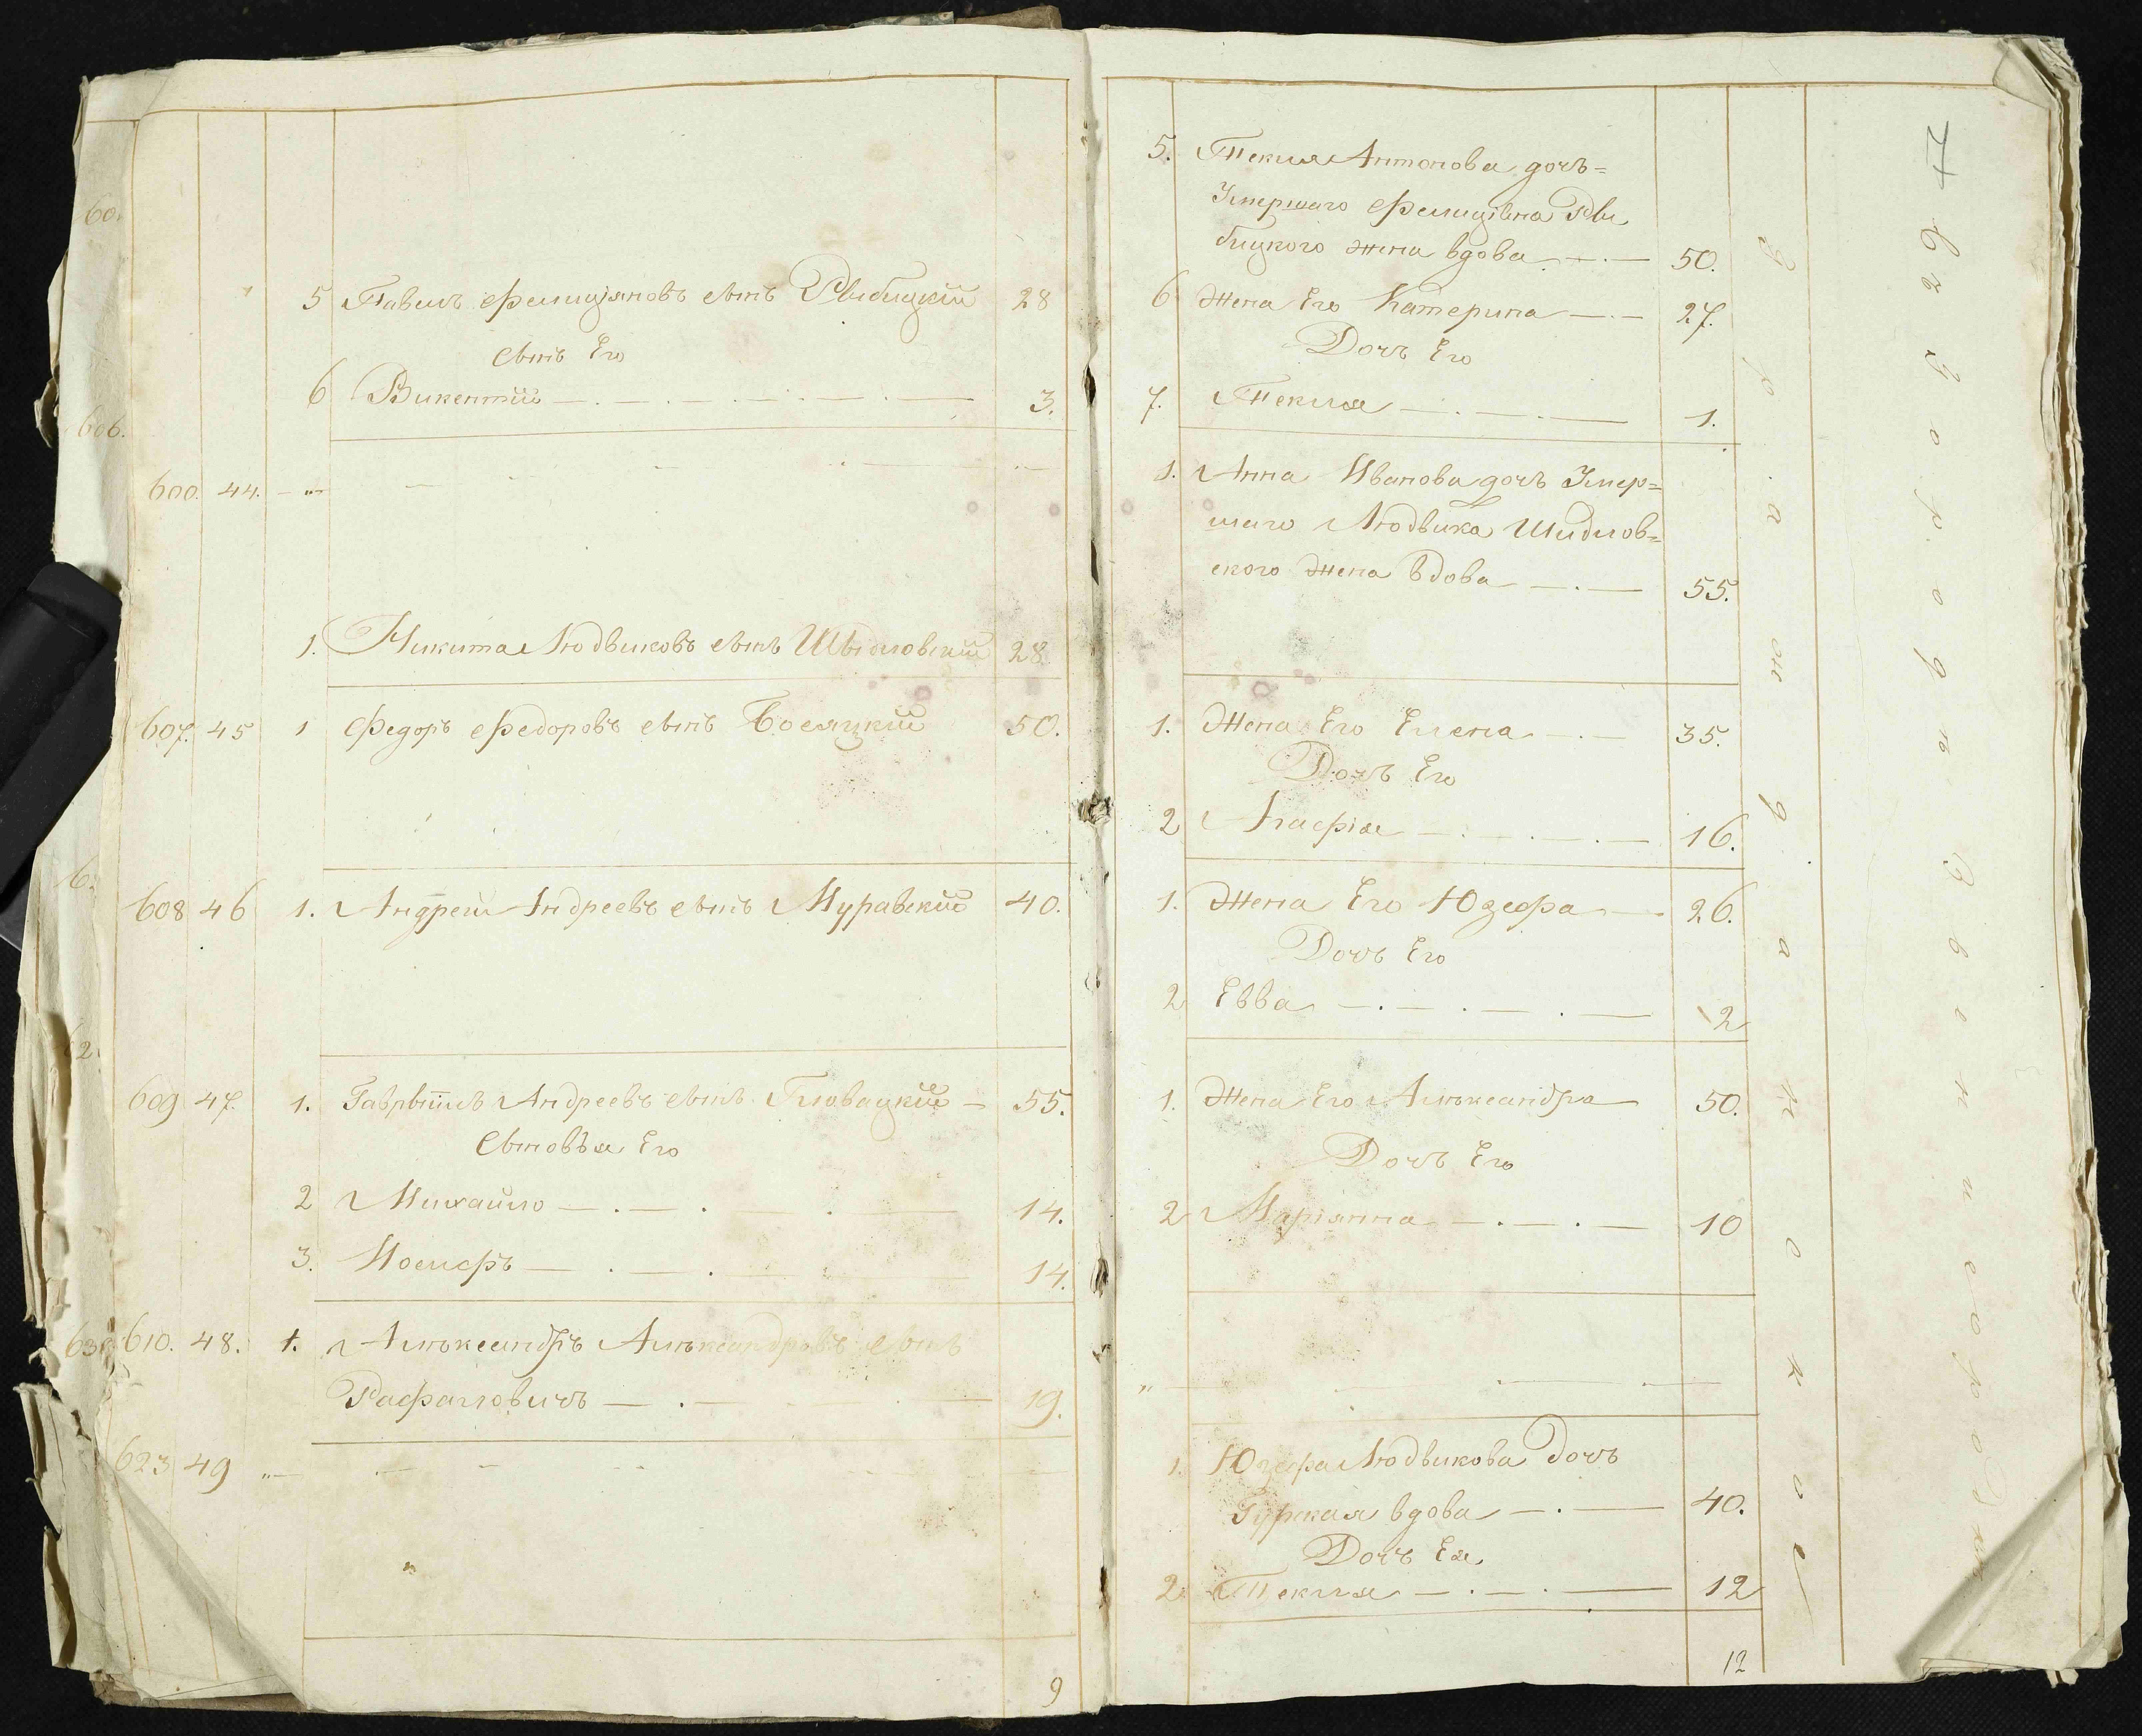 5 Павелъ Фелиціяновъ сынъ Рыбицкій 28
сынъ Его
6 Викентій 3.
600. 44.
1. Никита Людвиковъ сынъ Шыдловскій 28.
607. 45 1 Федоръ Федоровъ сынъ Босяцкій 50.
608 46 1. Андрей Андреевъ сынъ Муравскій 40.
609 47. 1. Гаврыилъ Андреевъ сынъ Гловацкій 55.
Сыновья Его
2 Михайло 14.
3. Иосифъ 14.
610. 48. 1. Александръ Александровъ сынъ
Рафаловичъ 19.
623 49
9
5. Текля Антонова дочь=
Умершаго Фелиціяна Ры
бицкого жена вдова 50.
6 Жена Его Катерина 27.
Дочь Его
7. Текля 1.
1. Анна Иванова дочь Умер=
шаго Людвика Шидлов=
ского жена вдова 55.
1. Жена Его Елена 35.
Дочь Его
2 Агафія 16.
1. Жена Его Юзефа 26.
Дочь Его
2 Евва 2
1. Жена Его Александра 50.
Дочь Его
2 Маріянна 10
1. Юзефа Людвикова дочь
Гурская вдова 40.
Дочь Ея
2. Текля 12
12
гражданское